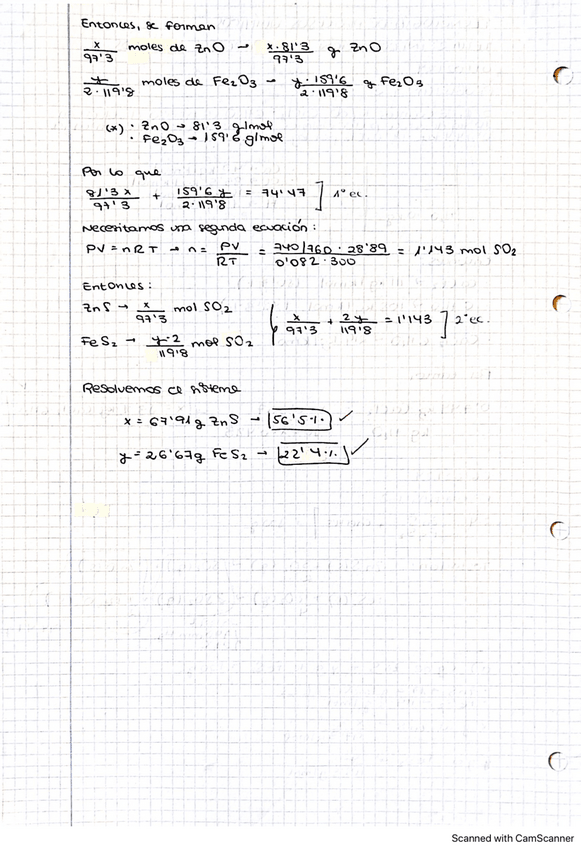 Entonces, se forman
x/97'3 moles de ZnO → x·81'3/97'3 g ZnO
y/2·119'8 moles de Fe2O3 → y·159'6/2·119'8 g Fe2O3
(*) · ZnO → 81'3 g/mol
· Fe2O3 → 159'6 g/mol
Por lo que
81'3 x/97'3 + 159'6 y/2·119'8 = 74'47 ] 1ª ec.
Necesitamos una segunda ecuación:
PV = nRT → n = PV/RT = 740/760 · 28'89/0'082·300 = 1'143 mol SO2
Entonces:
ZnS → x/97'3 mol SO2
FeS2 → y·2/119'8 mol SO2
x/97'3 + 2y/119'8 = 1'143 ] 2ª ec.
Resolvemos el sistema
x = 67'91g ZnS → 56'5% ✓
y = 26'67g FeS2 → 22'4% ✓
Scanned with CamScanner